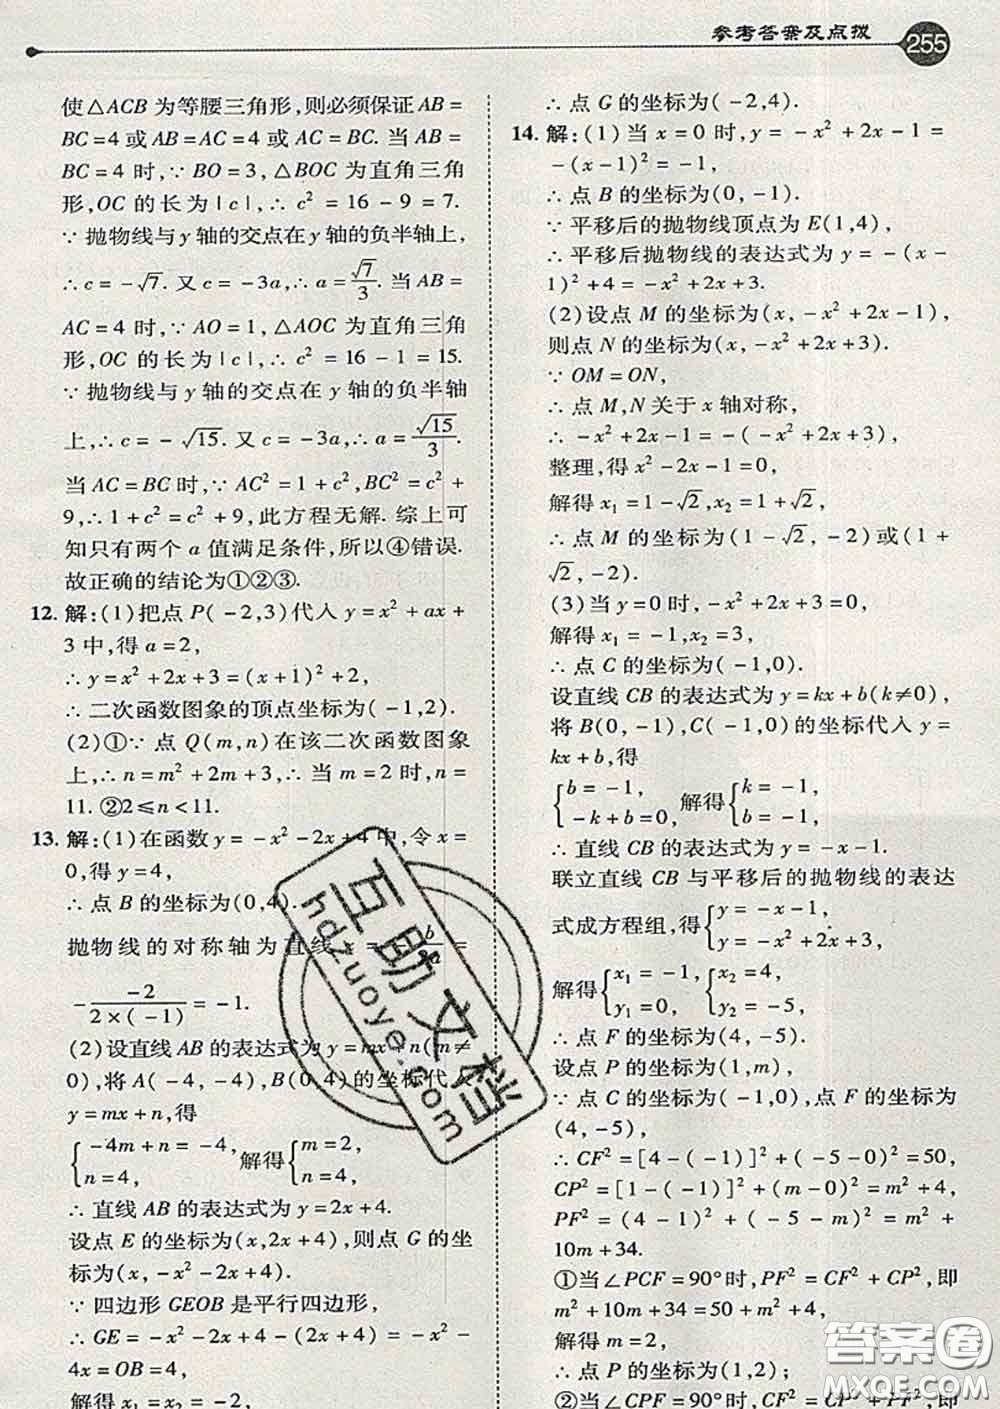 参考答案及点拨 255
使△ACB 为等腰三角形,则必须保证 AB =
BC = 4 或 AB = AC = 4 或 AC = BC. 当 AB =
BC = 4 时,∵ BO = 3,△BOC 为直角三角
形,OC 的长为 |c|,∴ c² = 16 - 9 = 7.
∵ 抛物线与 y 轴的交点在 y 轴的负半轴上,
∴ c = -√7. 又 c = -3a,∴ a = √7/3. 当 AB =
AC = 4 时,∵ AO = 1,△AOC 为直角三角
形,OC 的长为 |c|,∴ c² = 16 - 1 = 15.
∵ 抛物线与 y 轴的交点在 y 轴的负半轴
上,∴ c = -√15. 又 c = -3a,∴ a = √15/3.
当 AC = BC 时,∵ AC² = 1 + c²,BC² = c² +
9,∴ 1 + c² = c² + 9,此方程无解. 综上可
知只有两个 a 值满足条件,所以④错误.
故正确的结论为①②③.
12. 解:(1)把点 P( -2,3)代入 y = x² + ax +
3 中,得 a = 2,
∴ y = x² + 2x + 3 = (x + 1)² + 2,
∴ 二次函数图象的顶点坐标为( -1,2).
(2)①∵ 点 Q(m,n)在该二次函数图象
上,∴ n = m² + 2m + 3,∴ 当 m = 2 时,n =
11. ②2≤n < 11.
13. 解:(1)在函数 y = -x² - 2x + 4 中,令 x =
0,得 y = 4,
∴ 点 B 的坐标为(0,4).
抛物线的对称轴为直线 x = - b/2a =
- -2/2×( -1) = -1.
(2)设直线 AB 的表达式为 y = mx + n(m≠
0),将 A( -4, -4),B(0,4)的坐标代入
y = mx + n,得
{ -4m + n = -4, 解得{ m = 2,
n = 4, n = 4,
∴ 直线 AB 的表达式为 y = 2x + 4.
设点 E 的坐标为(x,2x + 4),则点 G 的坐
标为(x, -x² - 2x + 4).
∵ 四边形 GEOB 是平行四边形,
∴ GE = -x² - 2x + 4 - 2x -
4 = OB = 4,
解得 x₁ = x₂ = -2,
∴ 点 G 的坐标为( -2,4).
14. 解:(1)当 x = 0 时,y = -x² + 2x - 1 =
-(x - 1)² = -1,
∴ 点 B 的坐标为(0, -1).
∵ 平移后的抛物线顶点为 E(1,4),
∴ 平移后抛物线的表达式为 y = -(x -
1)² + 4 = -x² + 2x + 3.
(2)设点 M 的坐标为(x, -x² + 2x - 1),
则点 N 的坐标为(x, -x² + 2x + 3).
∵ OM = ON,
∴ 点 M,N 关于 x 轴对称,
∴ -x² + 2x - 1 = -( -x² + 2x + 3),
整理,得 x² - 2x - 1 = 0,
解得 x₁ = 1 - √2,x₂ = 1 + √2,
∴ 点 M 的坐标为(1 - √2, -2)或(1 +
√2, -2).
(3)当 y = 0 时, -x² + 2x + 3 = 0,
解得 x₁ = -1,x₂ = 3,
∴ 点 C 的坐标为( -1,0).
设直线 CB 的表达式为 y = kx + b(k≠0),
将 B(0, -1),C( -1,0)的坐标代入 y =
kx + b,得
{ b = -1, 解得{ k = -1,
-k + b = 0, b = -1,
∴ 直线 CB 的表达式为 y = -x - 1.
联立直线 CB 与平移后的抛物线的表达
式成方程组,得{ y = -x - 1,
y = -x² + 2x + 3,
解得{ x₁ = -1, { x₂ = 4,
y₁ = 0, y₂ = -5,
∴ 点 F 的坐标为(4, -5).
设点 P 的坐标为(1,m),
∵ 点 C 的坐标为( -1,0),点 F 的坐标为
(4, -5),
∴ CF² = [4 - ( -1)]² + ( -5 - 0)² = 50,
CP² = [1 - ( -1)]² + (m - 0)² = m² + 4,
PF² = (4 - 1)² + ( -5 - m)² = m² +
10m + 34.
①当∠PCF = 90°时,PF² = CF² + CP²,即
m² + 10m + 34 = 50 + m² + 4,
解得 m = 2,
∴ 点 P 的坐标为(1,2);
②当∠CPF = 90°时,CF² = CP² + PF²,即
互助文档
hdzuoye.com
答案圈
MXQE.COM